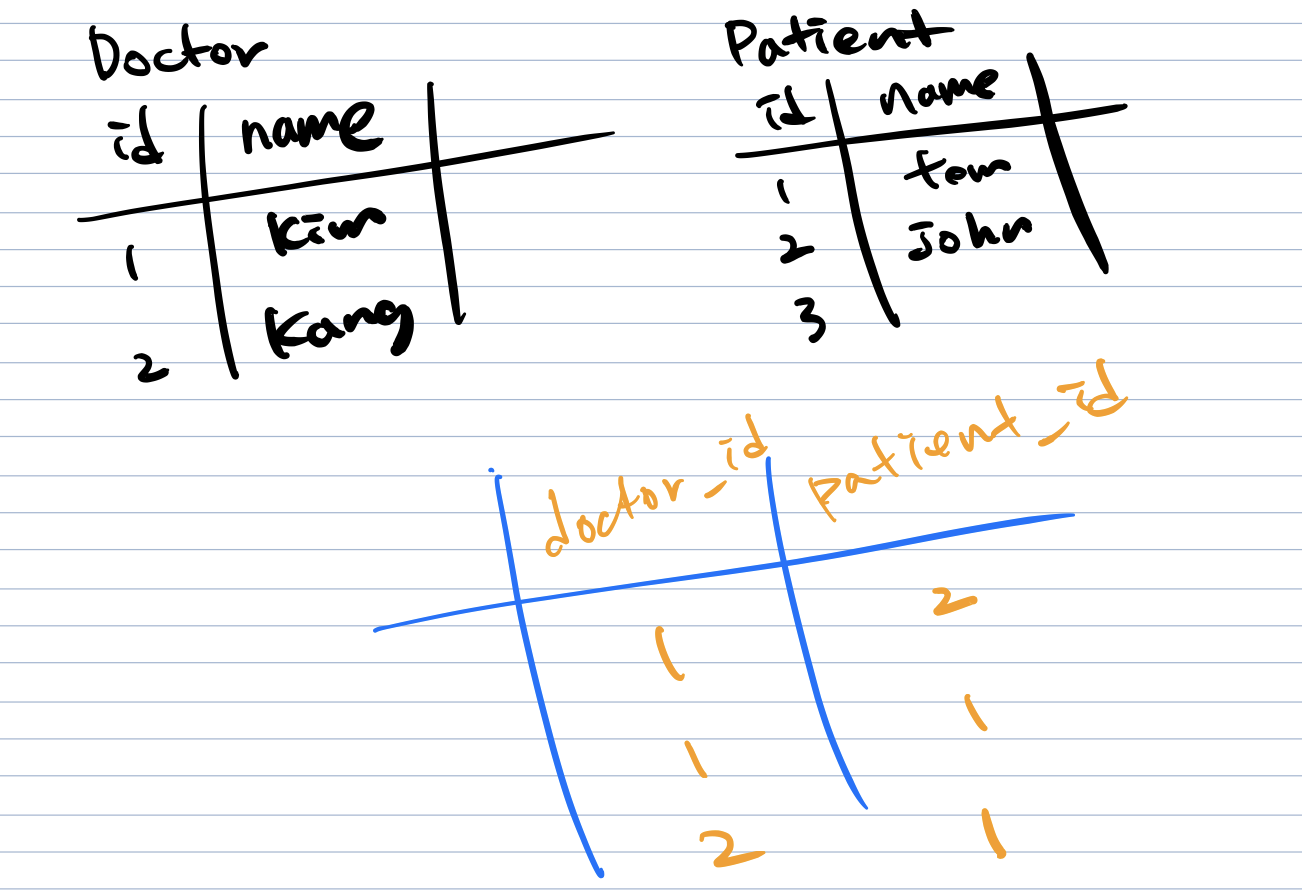 Doctor
id name
1 kim
2 Kang
Patient
id name
1 tom
2 john
3
doctor_id patient_id
1 2
1 1
2 1